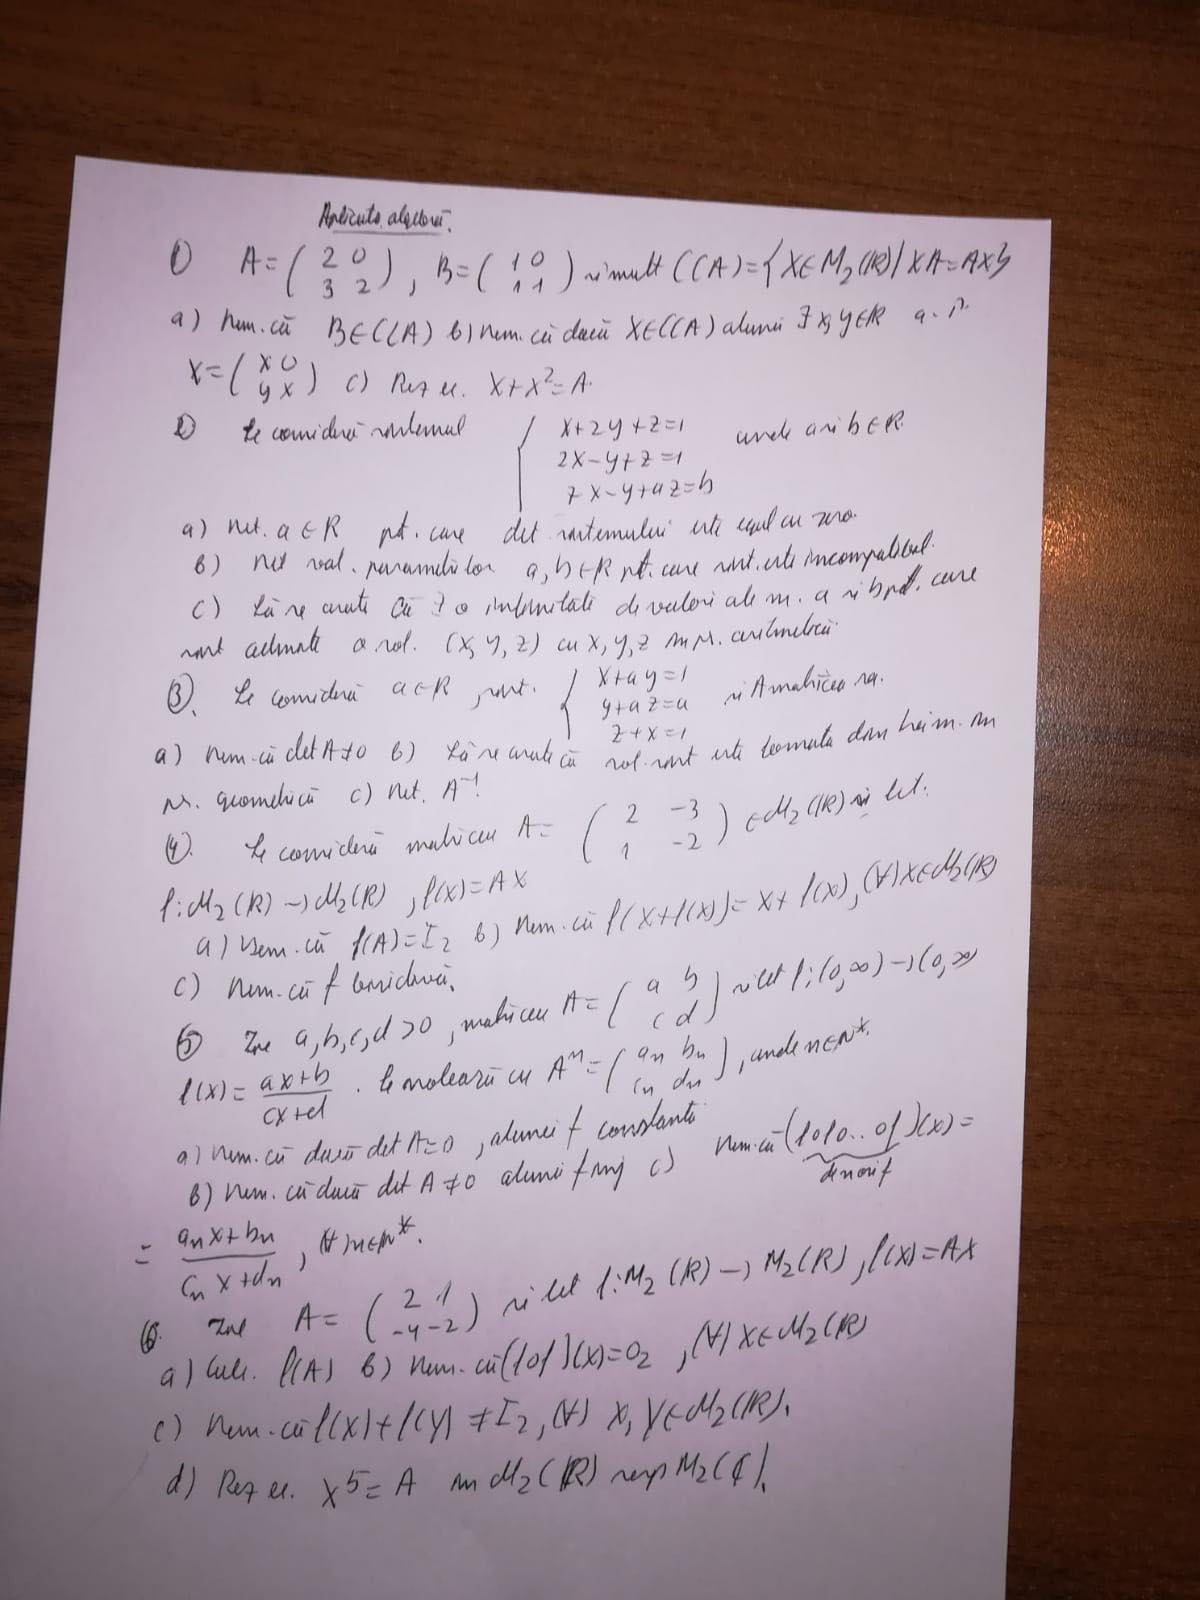 Aplicații algebră.
1) A=(2 0 3 2), B=(1 0 1 1) și mult C(A)={X∈M2(R)/XA=AX}
a) Dem. că B∈C(A) b) Dem. că dacă X∈C(A) atunci ∃ x,y∈R a.î.
X=(x 0 y x) c) Rez ec. X+X²=A.
2) Se consideră sistemul { x+2y+z=1 unde a și b∈R.
2x-y+z=1
7x-y+az=b
a) Det. a∈R pt. care det sistemului este egal cu zero.
b) Det val. parametrilor a,b∈R pt. care sist. este incompatibil.
c) Să se arate că ∃ o infinitate de valori ale nr. a și b pt. care
sist admite o sol. (x,y,z) cu x,y,z în pr. aritmetică.
3). Se consideră a∈R, sist. { x+ay=1 și A matricea sa.
y+az=a
z+x=1
a) Dem. că det A≠0 b) Să se arate că sol. sist este formată din trei nr. în
pr. geometrică c) Det. A⁻¹.
4). Se consideră matricea A=(2 -3 1 -2)∈M2(R) și fct.
f:M2(R)→M2(R), f(X)=AX
a) Dem. că f(A)=I2 b) Dem. că f(X+f(X))=X+f(X), (∀)X∈M2(R)
c) Dem. că f bijectivă.
5) Fie a,b,c,d>0, matricea A=(a b c d) și fct f:(0,∞)→(0,∞)
f(x)=ax+b/cx+d. Se notează cu Aⁿ=(an bn cn dn), unde n∈N*.
a) Dem. că dacă det A=0, atunci f constantă
b) Dem. că dacă det A≠0 atunci f inj c) Dem. că (fofo..of)(x)=
de n ori f
= anx+bn/cnx+dn, ∀ n∈N*.
6. Fie A=(2 1 -4 -2) și fct f:M2(R)→M2(R), f(X)=AX
a) Calc. f(A) b) Dem. că (fof)(X)=O2, (∀)X∈M2(R)
c) Dem. că f(X)+f(Y)≠I2, (∀) X,Y∈M2(R).
d) Rez ec. X⁵=A în M2(R) resp M2(C).